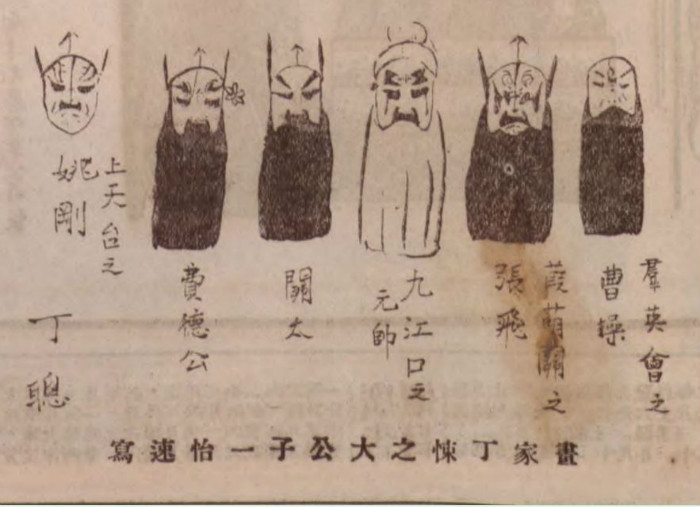 羣英會之
曹操
葭萌關之
張飛
九江口之
元帥
關太
費德公
上天台之
姚剛
丁聰
畫家丁悚之大公子一怡速寫